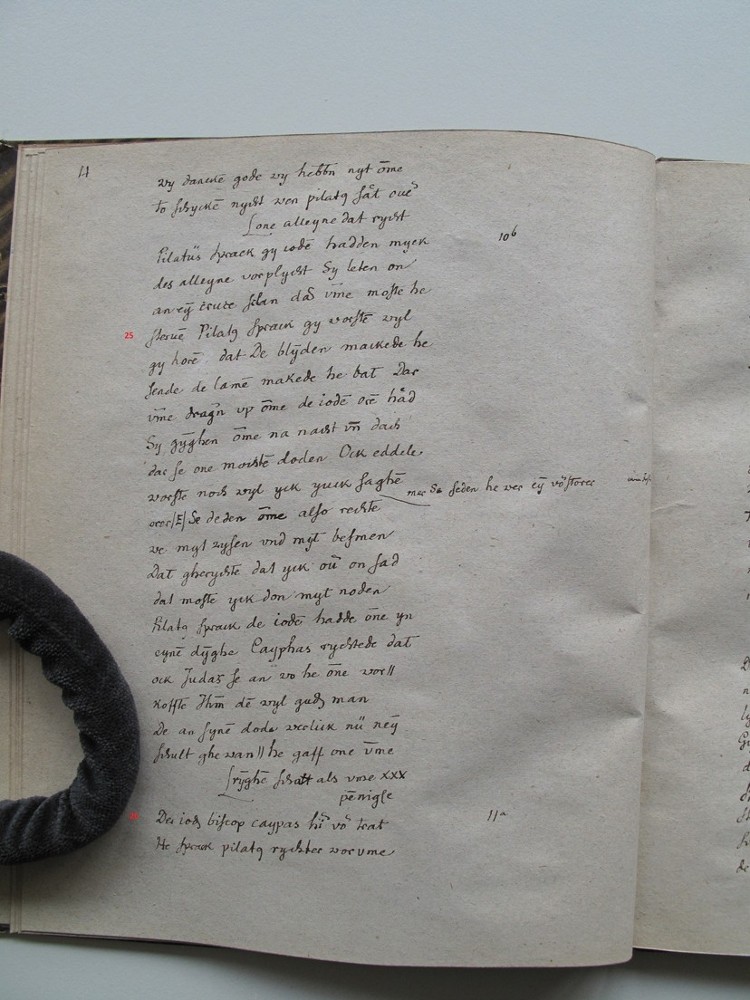 wy dancke gode wy hebbn nyt ome
to schycke nycht wen pilatq hat oue
Lone alleyne dat rycht
10b
Pilatus sprack gy iode hadden myck
des alleyne vorplycht Sy leten on
an ey cruce slan das vme moste he
25
sterue Pilatq sprack gy vorste wyl
gy hore dat De blyden mackede he
sende de lame makede he bat Dar
vme dragn up ome de iode ore had
Sy gyghen ome na nacht vn dach
dar se one mochte doden Ock eddele
vorste noch wyl yck yuck saghe
mer Se seden he wer ey vostorer
orer/E/ Se deden ome also rechte
we myt zysen vnd myt besmen
Dat gherychte dat yck ou on sad
dat moste yck don myt noden
Pilatq sprack de iode hadde one yn
eyne dyghe Cayphas rychtede dat
ock Judas se an wo he one vor//
koffte Ihm de wyl gudz man
De an syne dode werlick nu ney
schult ghe wan// he gaff one vme
sryghe schatt als vme xxx
penigk
De iodz biscop caypas hir vor trat
11a
He sprack pilatq rychter worvme